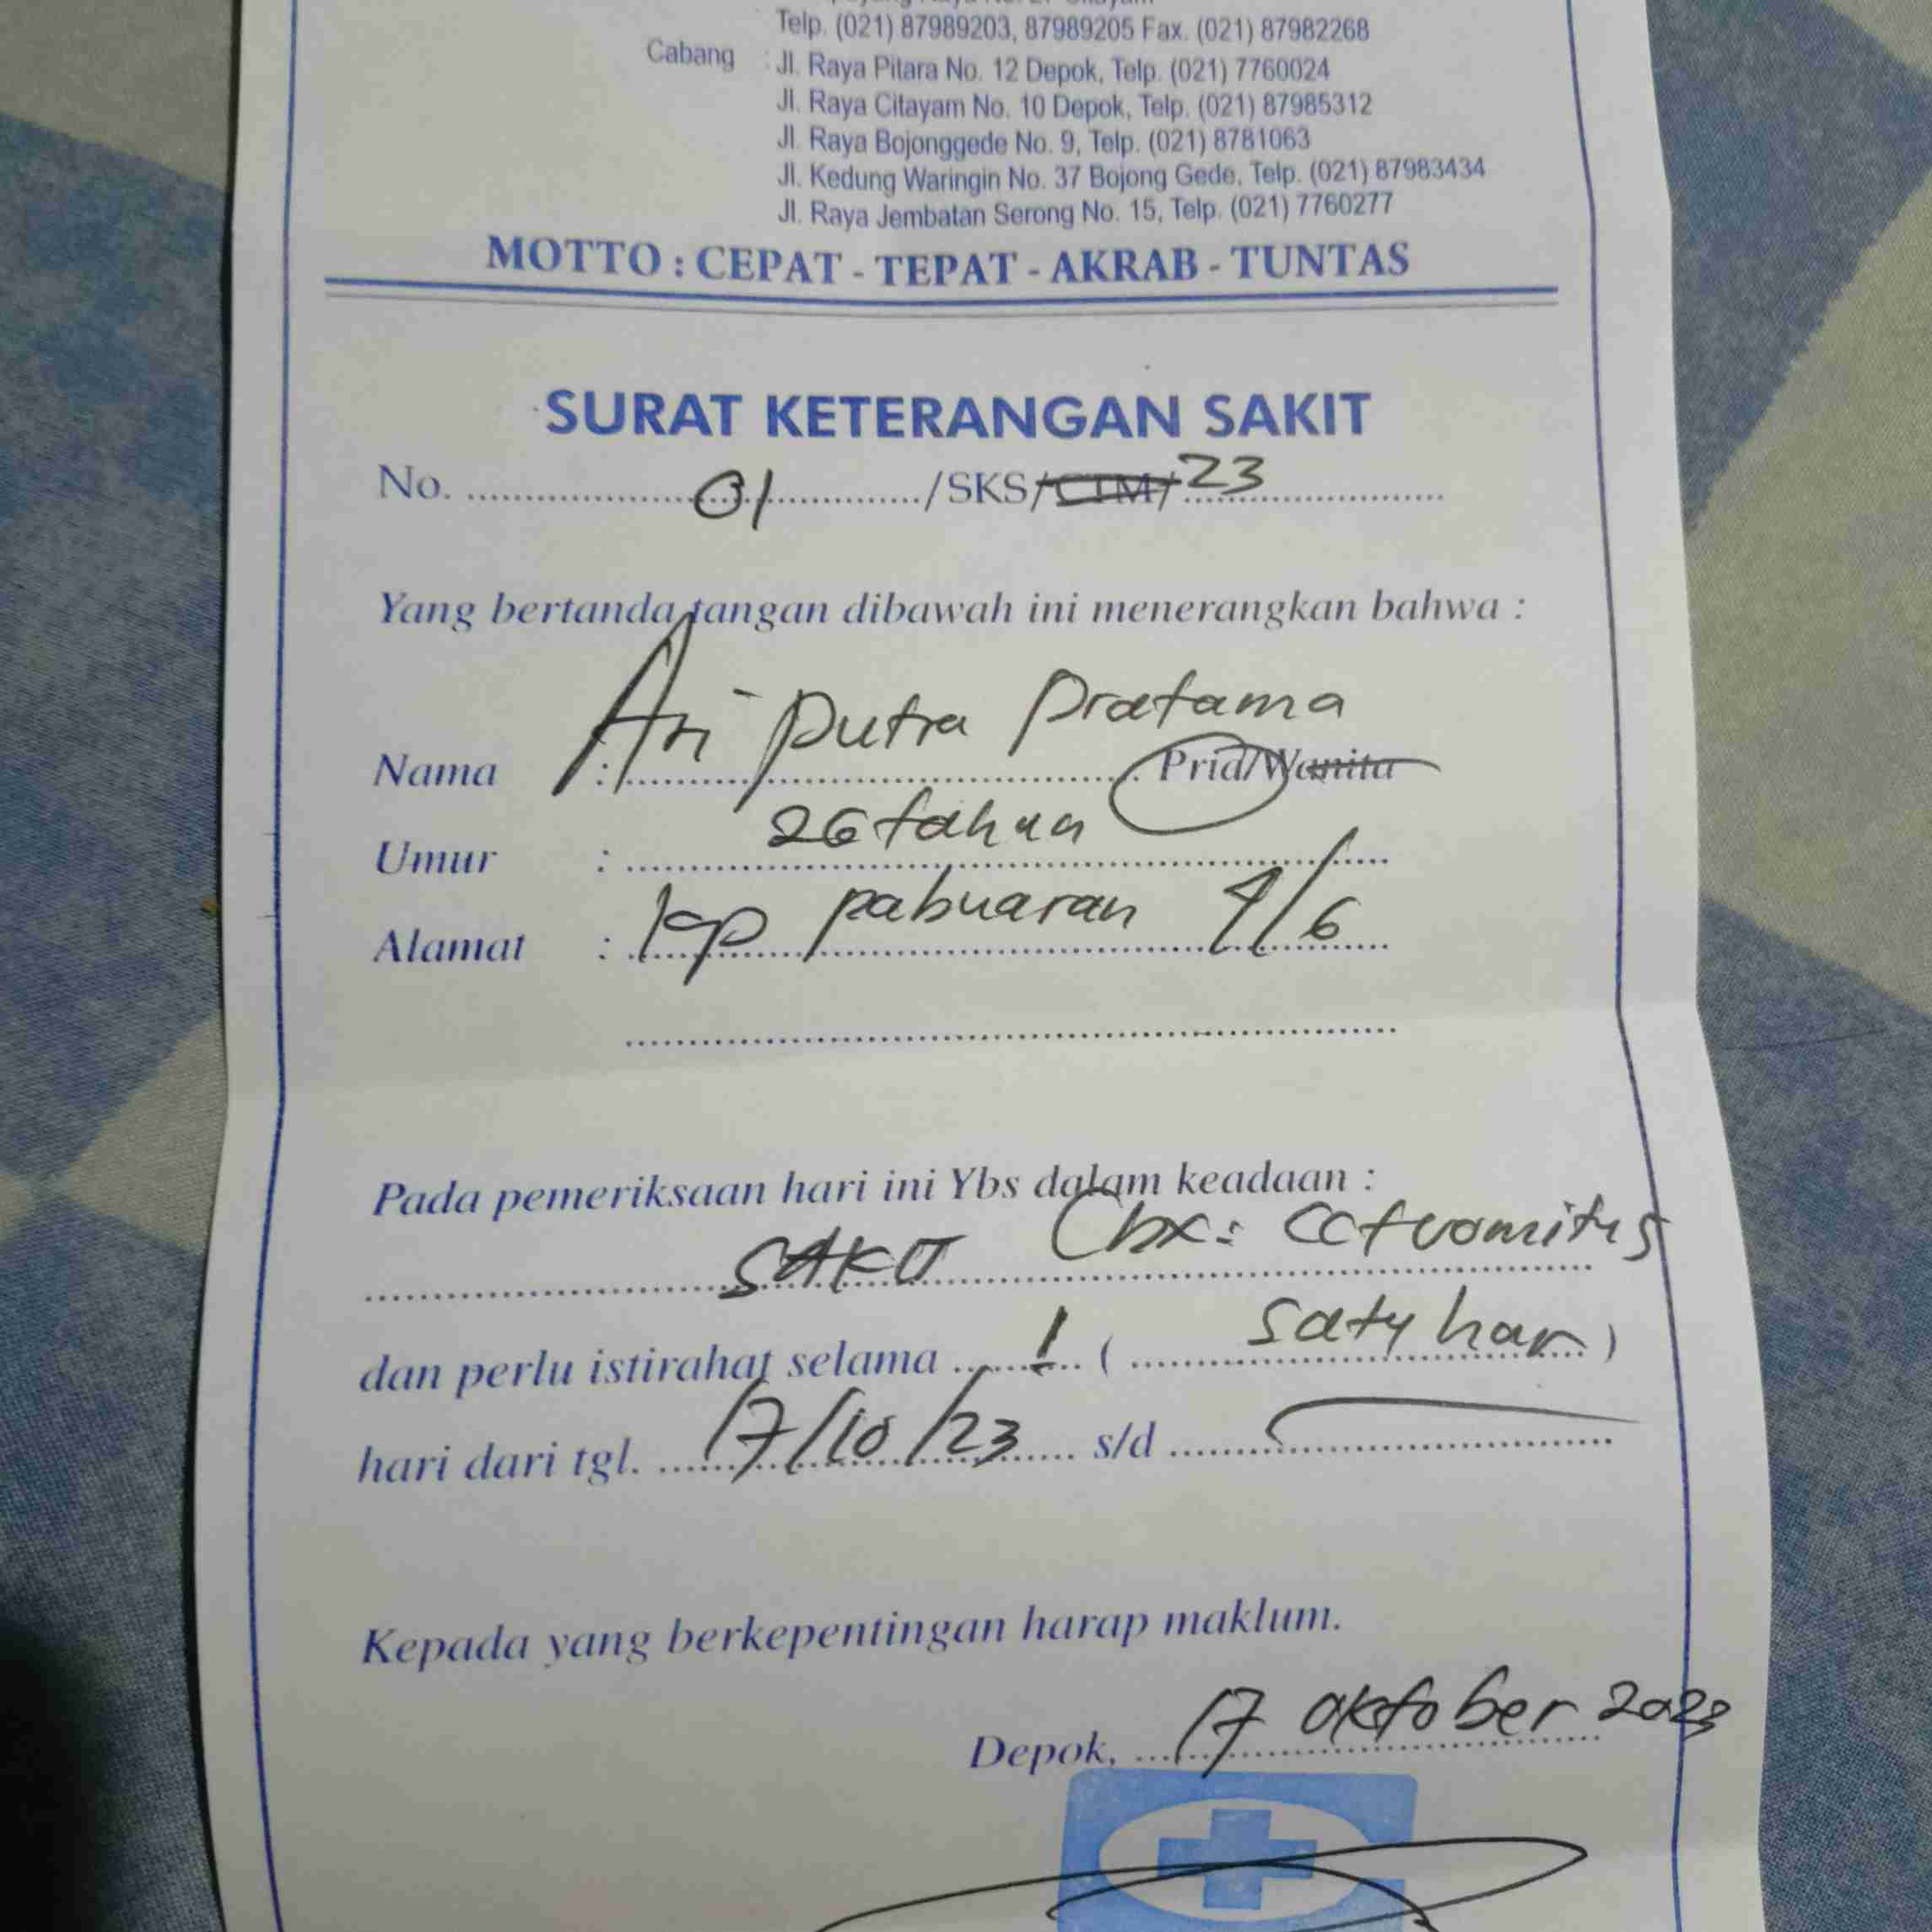 Telp. (021) 87989203, 87989205 Fax. (021) 87982268
Cabang : Jl. Raya Pitara No. 12 Depok, Telp. (021) 7760024
Jl. Raya Citayam No. 10 Depok, Telp. (021) 87985312
Jl. Raya Bojonggede No. 9, Telp. (021) 8781063
Jl. Kedung Waringin No. 37 Bojong Gede, Telp. (021) 87983434
Jl. Raya Jembatan Serong No. 15, Telp. (021) 7760277
MOTTO : CEPAT - TEPAT - AKRAB - TUNTAS
SURAT KETERANGAN SAKIT
No. 01 /SKS/CTM/ 23
Yang bertanda tangan dibawah ini menerangkan bahwa :
Nama : Ari Putra Pratama Pria/Wanita
Umur : 26 tahun
Alamat : kp pabuaran 4/6
Pada pemeriksaan hari ini Ybs dalam keadaan :
SAKIT vomitus
dan perlu istirahat selama 1 ( satu hari )
hari dari tgl. 17/10/23 s/d
Kepada yang berkepentingan harap maklum.
Depok, 17 oktober 2023